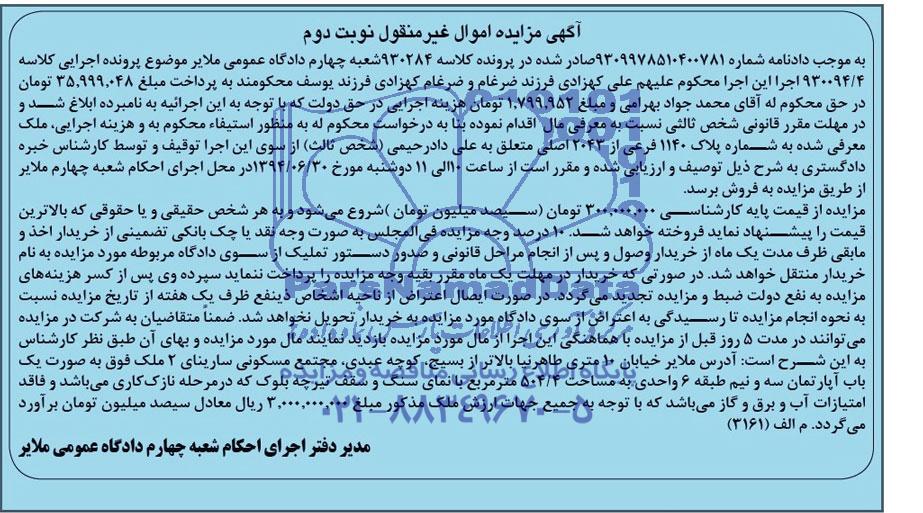 آگهی مزایده اموال غیرمنقول نوبت دوم
به موجب دادنامه شماره ۹۳۰۹۹۷۸۵۱۰۴۰۰۷۸۱صادر شده در پرونده کلاسه ۹۳۰۲۸۴شعبه چهارم دادگاه عمومی ملایر موضوع پرونده اجرایی کلاسه
۹۳۰۰۹۴/۴ اجرا این اجرا محکوم علیهم علی کهزادی فرزند ضرغام و ضرغام کهزادی فرزند یوسف محکومند به پرداخت مبلغ ۳۵,۹۹۹,۰۴۸ تومان
در حق محکوم له آقای محمد جواد بهرامی و مبلغ ۱,۷۹۹,۹۵۲ تومان هزینه اجرایی در حق دولت که با توجه به این اجرائیه به نامبرده ابلاغ شد و
در مهلت مقرر قانونی شخص ثالثی نسبت به معرفی مال اقدام نموده بنا به درخواست محکوم له به منظور استیفاء محکوم به و هزینه اجرایی، ملک
معرفی شده به شماره پلاک ۱۱۴۰ فرعی از ۲۰۴۳ اصلی متعلق به علی دادرحیمی (شخص ثالث) از سوی این اجرا توقیف و توسط کارشناس خبره
دادگستری به شرح ذیل توصیف و ارزیابی شده و مقرر است از ساعت ۱۰الی ۱۱ دوشنبه مورخ ۱۳۹۴/۰۶/۳۰در محل اجرای احکام شعبه چهارم ملایر
از طریق مزایده به فروش برسد.
مزایده از قیمت پایه کارشناسی ۳۰۰,۰۰۰,۰۰۰ تومان (سیصد میلیون تومان )شروع می‌شود و به هر شخص حقیقی و یا حقوقی که بالاترین
قیمت را پیشنهاد نماید فروخته خواهد شد. ۱۰ درصد وجه مزایده فی‌المجلس به صورت وجه نقد یا چک بانکی تضمینی از خریدار اخذ و
مابقی ظرف مدت یک ماه از خریدار وصول و پس از انجام مراحل قانونی و صدور دستور تملیک از سوی دادگاه مربوطه مورد مزایده به نام
خریدار منتقل خواهد شد. در صورتی که خریدار در مهلت یک ماه مقرر بقیه وجه مزایده را پرداخت ننماید سپرده وی پس از کسر هزینه‌های
مزایده به نفع دولت ضبط و مزایده تجدید می‌گردد. در صورت ایصال اعتراض از ناحیه اشخاص ذینفع ظرف یک هفته از تاریخ مزایده نسبت
به نحوه انجام مزایده تا رسیدگی به اعتراض از سوی دادگاه مورد مزایده به خریدار تحویل نخواهد شد. ضمناً متقاضیان به شرکت در مزایده
می‌توانند در مدت ۵ روز قبل از مزایده با هماهنگی این اجرا از مال مورد مزایده بازدید نمایند مال مورد مزایده و بهای آن طبق نظر کارشناس
به این شرح است: آدرس ملایر خیابان ۱۰ متری طاهرنیا بالاتر از بسیج، کوچه عبدی، مجتمع مسکونی سارینای ۲ ملک فوق به صورت یک
باب آپارتمان سه و نیم طبقه ۶ واحدی به مساحت ۵۰۴/۴ مترمربع با نمای سنگ و سقف تیرچه بلوک که درمرحله نازک‌کاری می‌باشد و فاقد
امتیازات آب و برق و گاز می‌باشد که با توجه به جمیع جهات ارزش ملک مذکور مبلغ ۳,۰۰۰,۰۰۰,۰۰۰ ریال معادل سیصد میلیون تومان برآورد
می‌گردد. م الف (۳۱۶۱)
مدیر دفتر اجرای احکام شعبه چهارم دادگاه عمومی ملایر
ParsNamadData
پایگاه اطلاع رسانی مناقصه و مزایده
۰۲۱-۸۸۳۴۹۶۷۰-۵